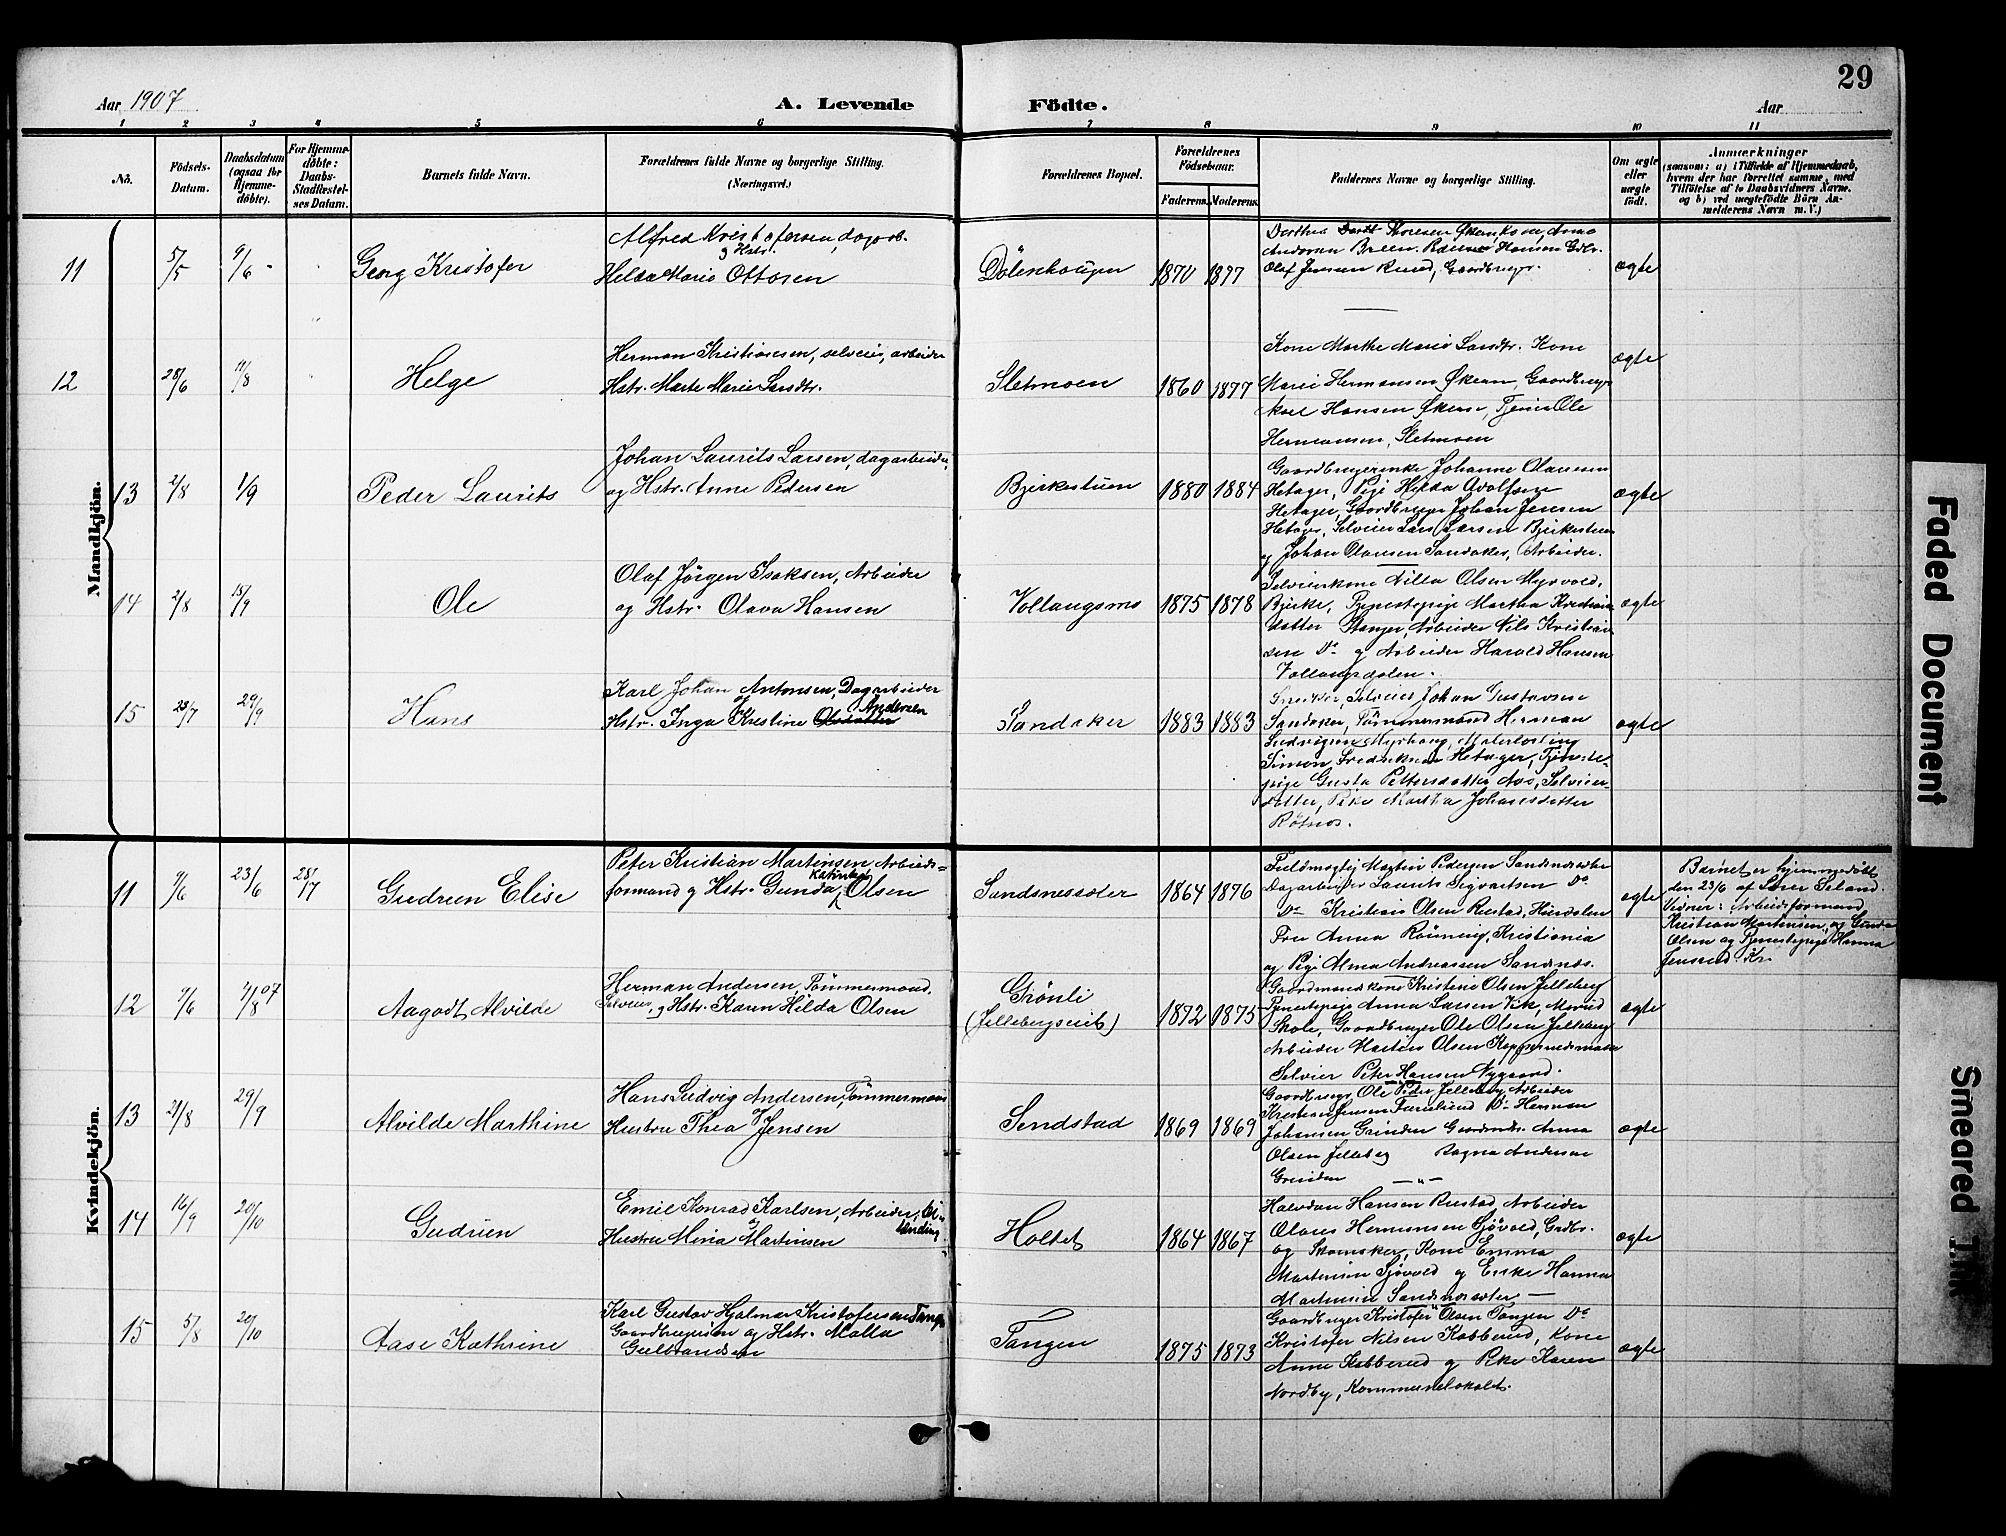 29
Aar 1907
A. Levende Födte.
Aar
1 2 3 4 5 6 7 8 9 10 11
No.
Födsels-Datum.
Daabsdatum (ogsaa for Hjemmedöbte).
For Hjemmedöbte: Daabs-Stadfæstelses Datum.
Barnets fulde Navn.
Forældrenes fulde Navne og borgerlige Stilling. (Næringsvei.)
Forældrenes Bopæl.
Forældrenes Födselsaar.
Faderens. Moderens.
Faddernes Navne og borgerlige Stilling.
Om ægte eller uægte födt.
Anmærkninger
(saasom: a) i Tilfælde af Hjemmedaab, hvem der har forrettet samme, med Tilföielse af to Daabsvidners Navne, og b) ved uægtefödte Börn Anmelderens Navn m. V.)
Mandkjön.
11 5/5 9/6 Georg Kristofer
Alfred Kristofersen, dagarb.
og Hstr.
Helda Marie Ottosen
1870 1877
Olaf Jensen Ruud, Gaardbruger.
ægte
12 28/6 11/8 Helge
Herman Kristiansen, selveier, arbeider
Hstr. Marte Marie Sandtr.
Sletmoen 1860 1877
Kone Marthe Marie Sandtr. Kone
Marie Hermansen Økern, Gaardbruger
Karl Hansen Økern, Tjener Ole
Hermansen, Sletmoen
ægte
13 2/8 1/9 Peder Laurits
Johan Laurits Larsen, dagarbeider,
og Hstr. Anne Pedersen
Bjerkestuen 1880 1884
Gaardbrugerenke Johanne Olavesen
Hetager, Pige Hilda Adolfsen
Hetager, Gaardbruger Johan Jensen
Hetager, Selveier Lars Larsen Bjerkestuen
og Johan Olausen Sandaker, Arbeider.
ægte
14 2/8 15/9 Ole
Olaf Jörgen Isaksen, Arbeider
og Hstr. Olava Hansen
Vollaugsmo 1875 1878
Selveierkone Nilla Olsen Myrvold,
Bjerke, Tjenestepige Martha Kristian-
datter Stanger, Arbeider Nils Kristian
sen Do og Arbeider Harald Hansen
Vollaugsdalen.
ægte
15 23/7 29/9 Hans
Karl Johan Antonsen, Dagarbeider
og Andersen
Hstr. Inga Kristine Olsdatter
Sandaker 1883 1883
Snedker, Selveier Johan Gustavsen
Sandaker, Tömmermand Herman
Ludvigsen Myrhaug,
Simon Fredriksen Hetager, Tjeneste-
pige Gusta Pettersdatter Aas, Selveier-
datter, Pike Martha Johansdatter
Rötnes.
ægte
Kvindekjön.
11 9/6 23/6 28/7 Gudrun Elise
Peter Kristian Martinsen Arbeids-
Katinka
formand og Hstr. Gunda Olsen
Sandsnesseter 1864 1876
Fuldmægtig Martin Pedersen Sandsnesseter
Dagarbeider Laurits Sigvartsen Do
Do Kristian Olsen Rustad, Hurdalen
Fru Anna Rönning, Kristiania
og Pige Alma Andreassen Sandsnes.
ægte
Barnet er hjemmedöbt
den 23/6 af Lærer Seland.
Vidner: Arbeidsformand
Kristian Martinsen, og Gunda
Olsen og Tjenestepige Hanna
12 7/6 4/8 07 Aagodt Alvilde
Herman Andersen, Tömmermand,
Selveier, og Hstr. Karen Hilda Olsen
Grönli
(Jellebergseie) 1872 1875
Gaardmandskone Kristine Olsen Jelleberg
Tjenestepige Anna Larsen Vik, Morud
Skole, Gaardbruger Ole Olsen Jelleberg
Arbeider Martin Olsen
Selveier Peter Hansen Nygaard.
ægte
13 21/8 29/9 Alvilde Marthine
Hans Ludvig Andersen, Tömmermand
Hustru Thea Jensen
Sendstad 1869 1869
Gaardbruger Ole Peder Jelleberg Arbeider
Kristian Jensen Furulund Do Herman
Johansen Grinden Gaardmds. Anna
Olsen Jelleberg Ragna Andersen
Grinden — „ —
ægte
14 16/9 20/10 Gudrun
Emil Konrad Karlsen, Arbeider,
og
Hustru Mina Martinsen
Holtet 1864 1867
Halvdan Hansen Rustad, Arbeider
Olaves Hermansen Sjövold, Grdbr.
og Skomaker, Kone Emma
Martinsen Sjövold og Enke Hanna
Martinsen Sandsnesseter —
ægte
15 5/8 20/10 Aase Kathrine
Karl Gustav Hjalmar Kristofersen Tangen
Gaardbruger og Hstr. Malla
Gulbrandsen
Tangen 1875 1873
Gaardbruger Kristofer Olsen Tangen Do
Kristofer Nilsen Kabberud, Kone
Anne Kabberud og Pike Karen
Nordby, Kommunelokalet.
ægte
Faded Document
Smeared Ink